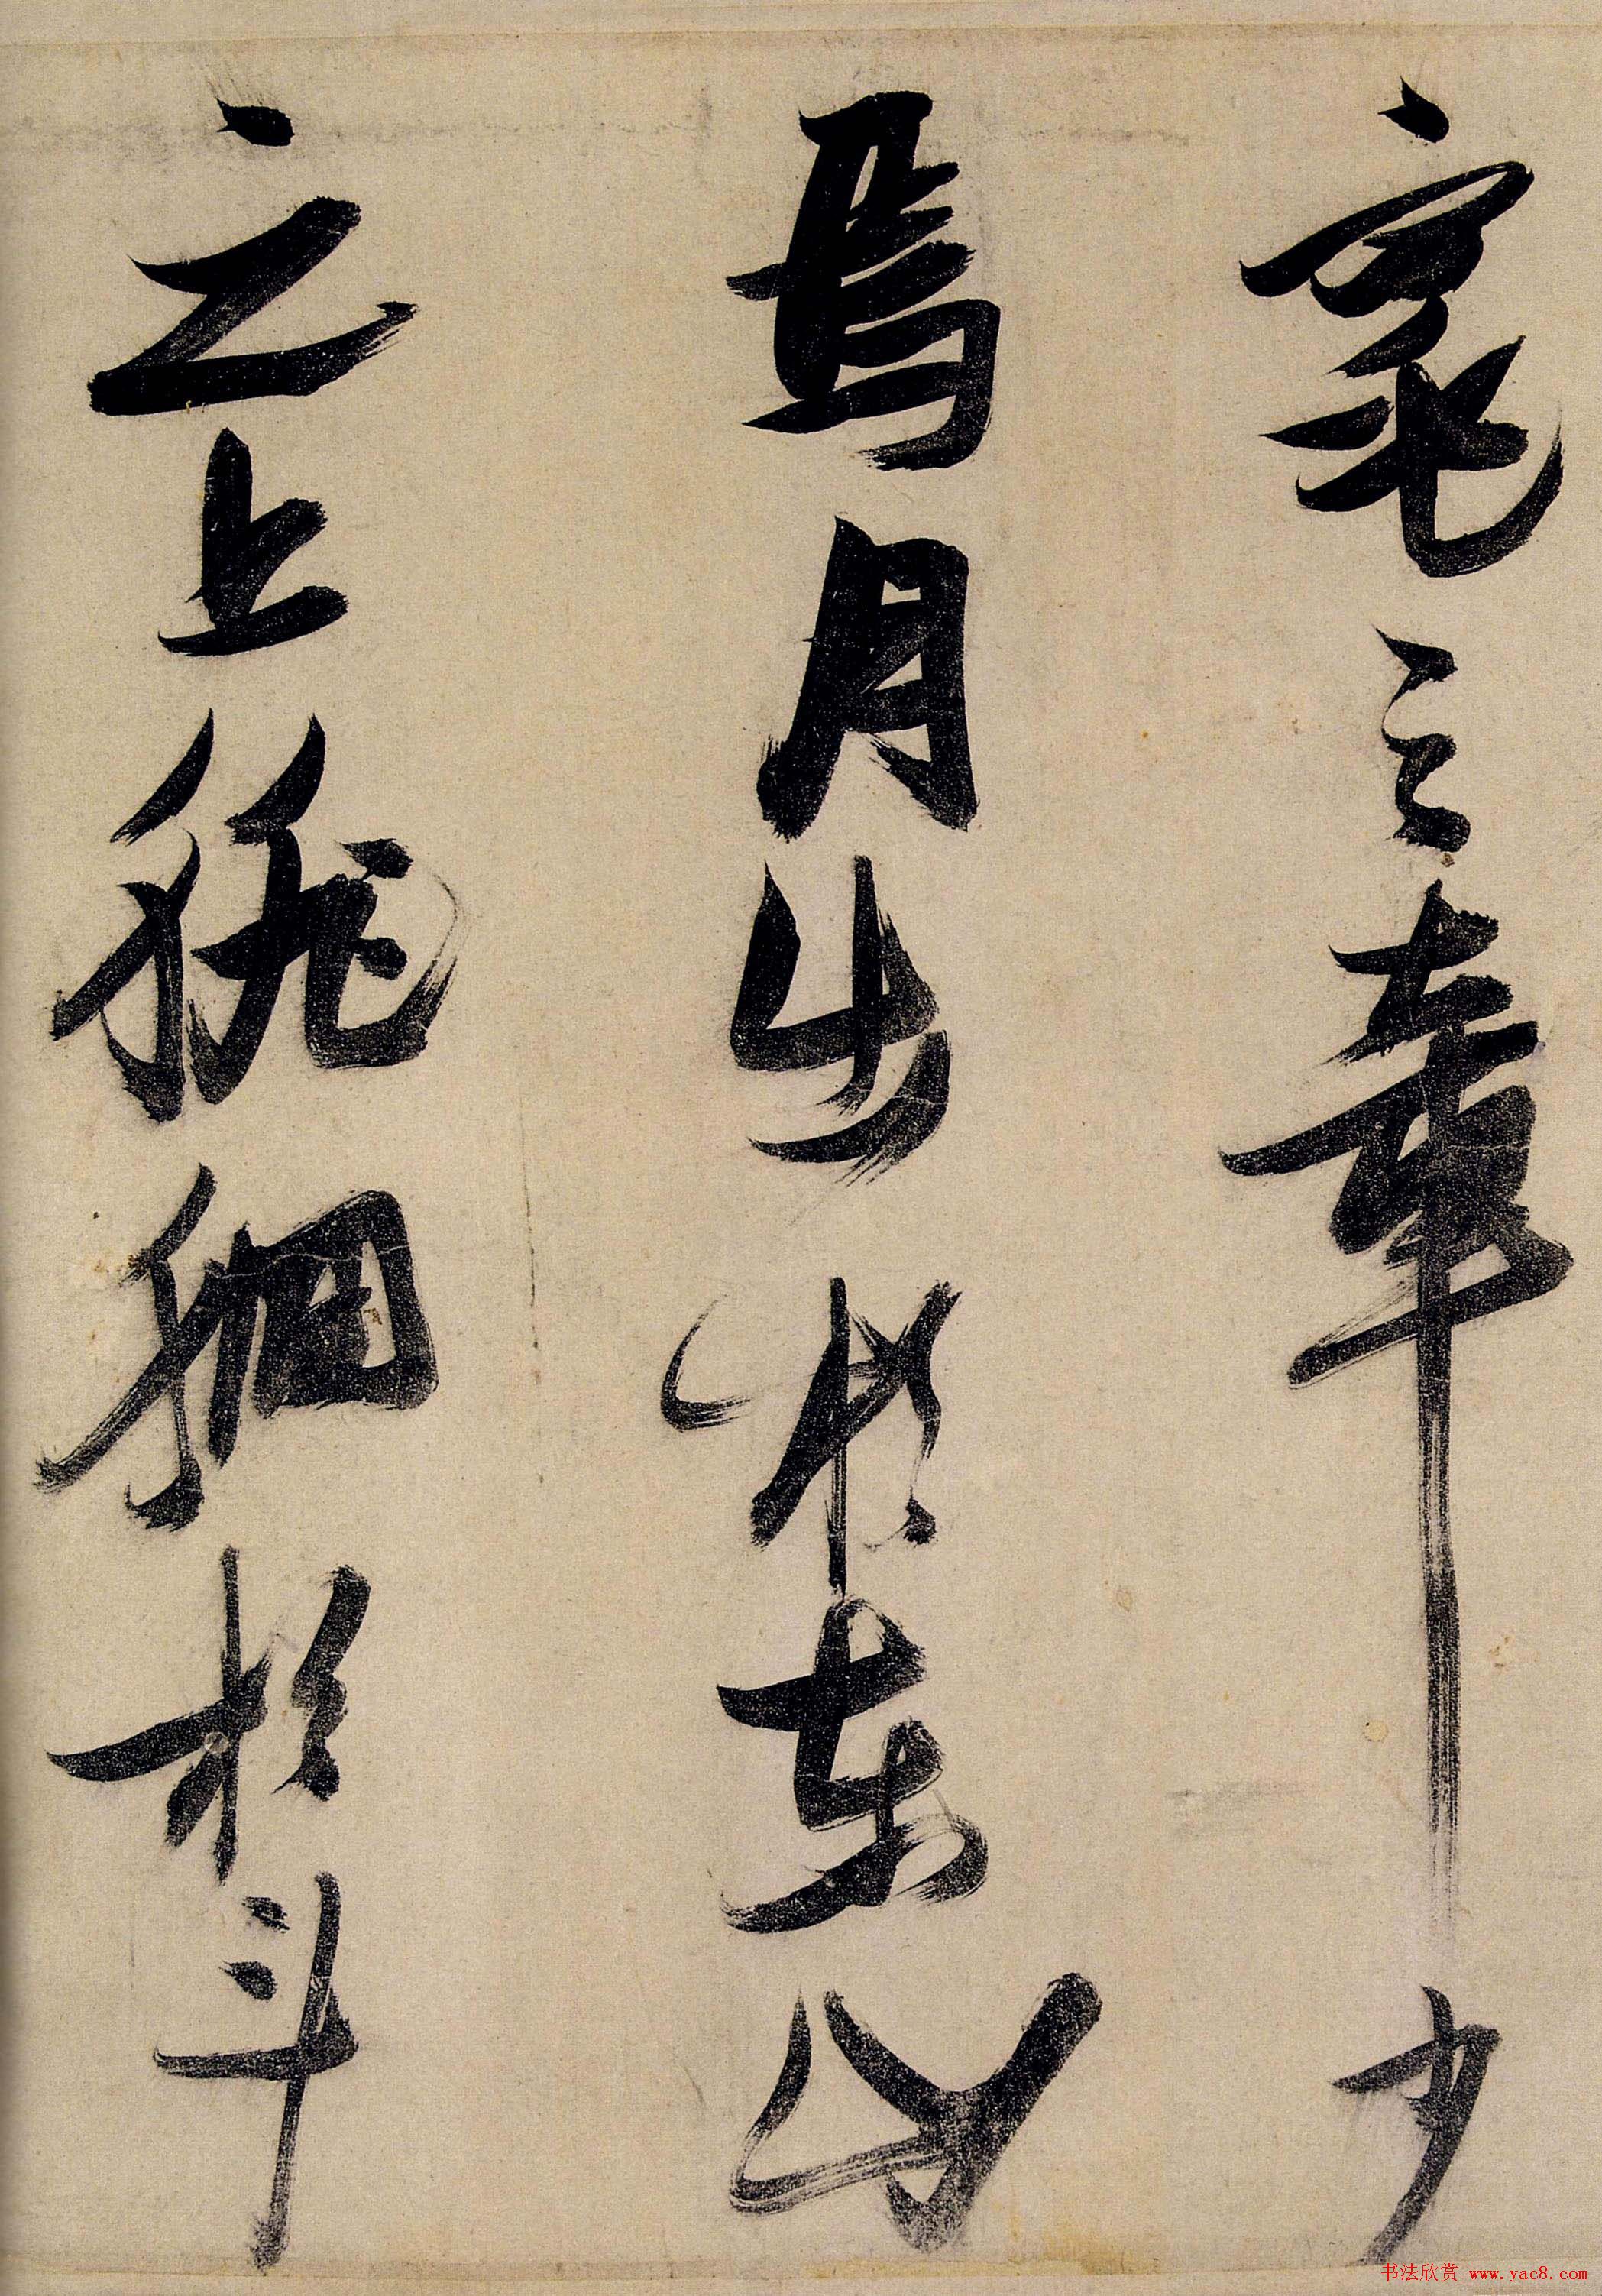 窕之章少
焉月出於東山
之上徘徊於斗
书法欣赏 www.yac8.com